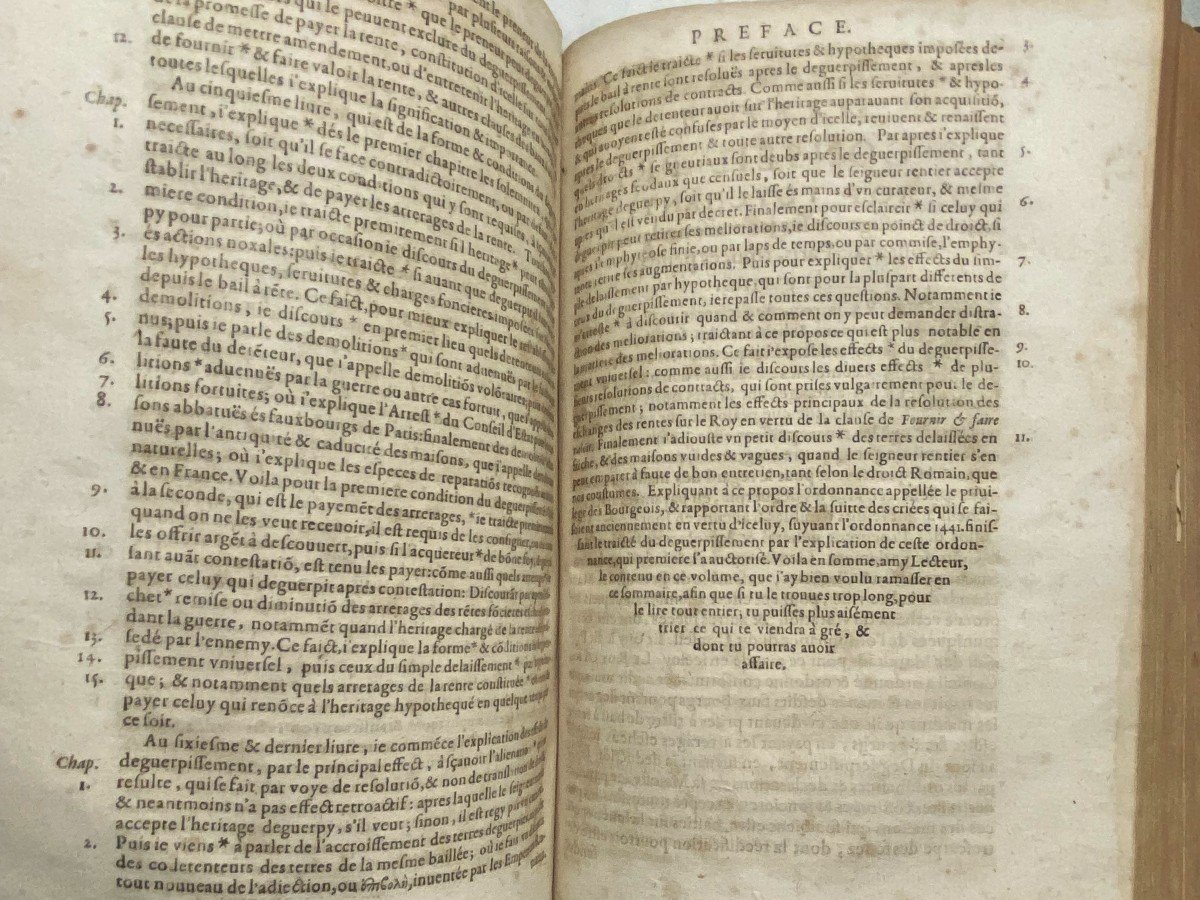 par plusieurs
que le preneur
qui le peuuent exclure du deguerpissement
de la promesse de payer la rente, constitution d'icelle
clause de mettre amendement, ou d'entretenir l'heritage
12. de fournir * & faire valoir la rente, & autres clauses
toutes lesquelles i'explique la signification & importance
Au cinquiesme liure, qui est de la forme & conditions du
Chap. sement, i'explique * dés le premier chapitre les solemn
1. necessaires, soit qu'il se face contradictoirement, ou par
traicte au long les deux conditions qui y sont requises, à
stablir l'heritage, & de payer les arrerages de la rente.
2. miere condition, ie traicte premierement si l'heritage * peut
py pour partie; où par occasion ie discours du deguerpissement
3. és actions noxales: puis ie traicte * si auant que deguerpir
les hypotheques, seruitutes & charges foncieres imposees
depuis le bail à réte. Ce faict, pour mieux expliquer le
4. demolitions, ie discours * en premier lieu quels detenteurs
5. nus; puis ie parle des demolitions * qui sont aduenuës par le
la faute du detéteur, que i'appelle demolitiós volótaires:
6. litions * aduenuës par la guerre ou autre cas fortuit, que
7. litions fortuites; où i'explique l'Arrest * du Conseil d'Estat
8. sons abbatuës és fauxbourgs de Paris: finalement des
nuës par l'antiquité & caducité des maisons, que i'appelle
naturelles; où i'explique les especes de reparatiós
& en France. Voila pour la premiere condition du deguerpissement
9. à la seconde, qui est le payemét des arrerages, * ie traicte
quand on ne les veut receuoir, il est requis de les consigner,
10. les offrir argét à descouuert, puis si l'acquereur * de bóne foy,
11. sant auāt contestatió, est tenu les payer: cóme aussi quels
payer celuy qui deguerpit aprés contestation: Discourāt
12. chet * remise ou diminutió des arrerages des rétes fócieres
dant la guerre, notammét quand l'heritage chargé de la rente
13. sedé par l'ennemy. Ce faict, i'explique la forme * & códition
14. pissement vniuersel, puis ceux du simple delaissement *
15. que; & notamment quels arrerages de la rente constituée *
payer celuy qui renóce à l'heritage hypothequé en quelque
ce soit.
Au sixiesme & dernier liure, ie comméce l'explication
Chap. deguerpissement, par le principal effect, à sçauoir l'alienation
1. resulte, qui se fait par voye de resolutió, & non de
& neantmoins n'a pas effect retroactif: apres laquelle le
accepte l'heritage deguerpy, s'il veut; sinon, il est regy
2. Puis ie viens * à parler de l'accroissement des terres deguerpies
des codetenteurs des terres de la mesme baillée; où ie
tout nouueau de l'adiection, ou ἐπιβολὴ, inuentée par les
PREFACE.
Ce faict ie traicte * si les seruitutes & hypotheques imposées de- 3.
puis le bail à rente sont resoluës apres le deguerpissement, & apres les
autres resolutions de contracts. Comme aussi si les seruitutes * & hypo- 4.
theques que le detenteur auoit sur l'heritage auparauant son acquisitió,
& qui auoyent esté confuses par le moyen d'icelle, reuiuent & renaissent
apres le deguerpissement & toute autre resolution. Par apres i'explique
quels droicts * seigneuriaux sont deubs après le deguerpissement, tant 5.
en heritages feodaux que censuels, soit que le seigneur rentier accepte
l'heritage deguerpy, soit qu'il le laisse és mains d'vn curateur, & mesme
apres qu'il est vendu par decret. Finalement pour esclaircir * si celuy qui 6.
deguerpit peut retirer ses meliorations, ie discours en poinct de droict, si
apres l'emphyteose finie, ou par laps de temps, ou par commise, l'emphy-
teote retire ses augmentations. Puis pour expliquer * les effects du sim- 7.
ple delaissement par hypotheque, qui sont pour la pluspart differents de
ceux du deguerpissement, ie repasse toutes ces questions. Notamment ie
m'arreste * à discourir quand & comment on y peut demander distra- 8.
ction des meliorations; traictant à ce propos ce qui est plus notable en
la matiere des meliorations. Ce fait i'expose les effects * du deguerpisse- 9.
ment vniuersel: comme aussi ie discours les diuers effects * de plu- 10.
sieurs resolutions de contracts, qui sont prises vulgairement pour le de-
guerpissement; notamment les effects principaux de la resolution des
eschanges des rentes sur le Roy en vertu de la clause de Fournir & faire
valoir. Finalement i'adiouste vn petit discours * des terres delaissées en 11.
friche, & des maisons vuides & vagues, quand le seigneur rentier s'en
peut emparer à faute de bon entretien, tant selon le droict Romain, que
nos coustumes. Expliquant à ce propos l'ordonnance appellée le priui-
lege des Bourgeois, & rapportant l'ordre & la suitte des criées qui se fai-
soient anciennement en vertu d'iceluy, suyuant l'ordonnance 1441. finis-
sant le traicté du deguerpissement par l'explication de ceste ordon-
nance, qui premiere l'a auctorisé. Voila en somme, amy Lecteur,
le contenu en ce volume, que i'ay bien voulu ramasser en
ce sommaire, afin que si tu le trouues trop long, pour
le lire tout entier, tu puisses plus aisément
trier ce qui te viendra à gré, &
dont tu pourras auoir
affaire.